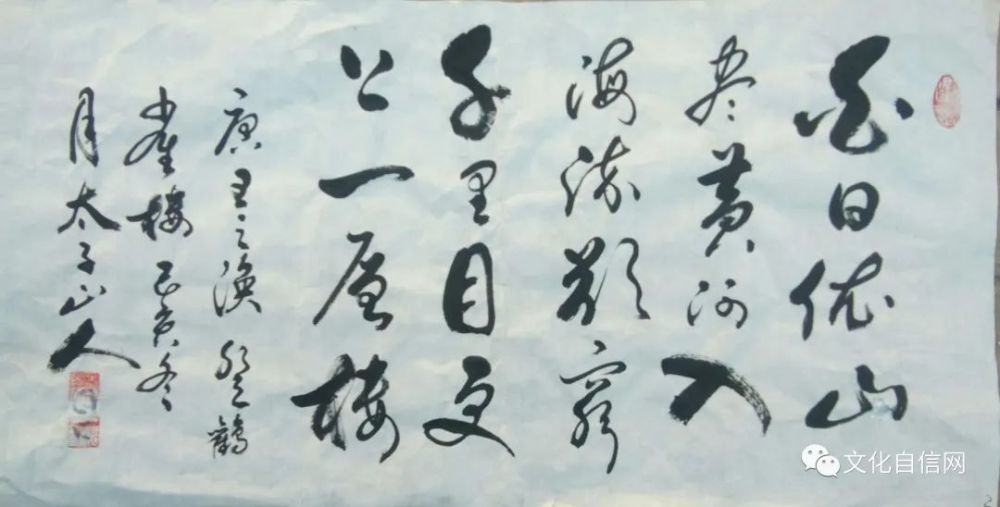 白日依山
盡黄河入
海流欲窮
千里目更
上一層樓
唐王之涣登鸛
雀樓己亥冬
月太子山人
文化自信网